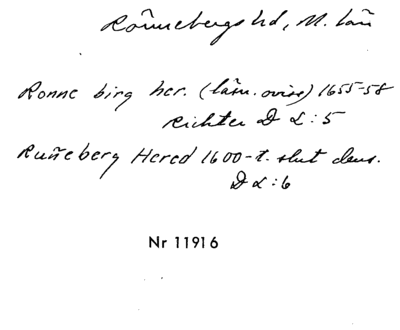 Rönnebergs hd, M. län
Ronne birg her. (länn. oviss) 1655-58
Richter D L: 5
Ruñeberg Hered 1600-t. slut dens.
D L: 6
Nr 11916